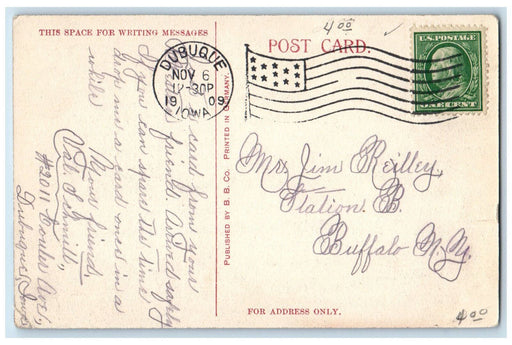 THIS SPACE FOR WRITING MESSAGES
4 00
POST CARD.
DUBUQUE
NOV 6
12-30P
1909
IOWA
U.S. POSTAGE
ONE CENT
card from your
friend. Arrived safely
If you can spare the time
drop me a card once in a
while
Your friend,
Val. Schmitt,
#2011 Couler Ave.,
Dubuque, Iowa
PUBLISHED BY B. B. CO. PRINTED IN GERMANY.
Mrs Jim Reilley,
Station B.
Buffalo N.Y.
FOR ADDRESS ONLY.
4 00